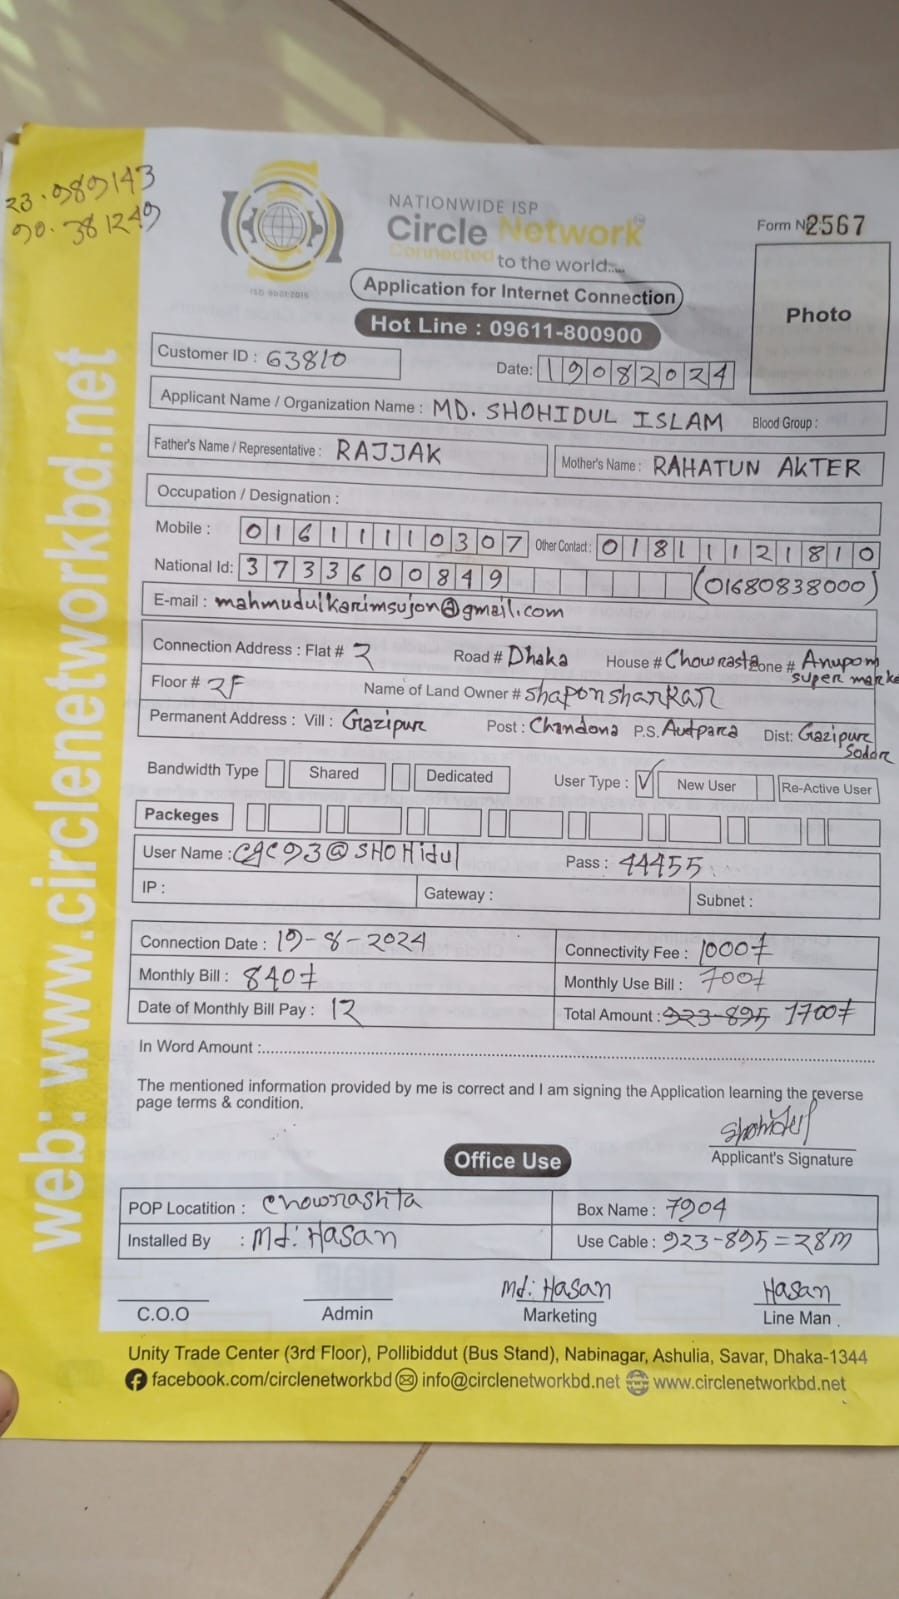 23.989143
90.381249
NATIONWIDE ISP
Circle Network
Connected to the world.....
ISO 9001:2015
Form No 2567
Application for Internet Connection
Hot Line : 09611-800900
Photo
Customer ID : 63810
Date: 19082024
Applicant Name / Organization Name : MD. SHOHIDUL ISLAM Blood Group :
Father's Name / Representative : RAJJAK Mother's Name : RAHATUN AKTER
Occupation / Designation :
Mobile : 01611110307 Other Contact : 01811121810
National Id: 3733600849 (01680838000)
E-mail : mahmudulkarimsujon@gmail.com
Connection Address : Flat # 2 Road # Dhaka House # Chowrasta Zone # Anupom super marke
Floor # 2F Name of Land Owner # shaponsharkar
Permanent Address : Vill : Gazipur Post : Chandona P.S. Dist: Gazipur Sodor
Bandwidth Type Shared Dedicated User Type : ✓ New User Re-Active User
Packeges
User Name : CGC93@SHOHidul Pass : 44455
IP : Gateway : Subnet :
Connection Date : 19-8-2024 Connectivity Fee : 1000/=
Monthly Bill : 840/= Monthly Use Bill : 700/=
Date of Monthly Bill Pay : 12 Total Amount : 923-895 1700/=
In Word Amount :
The mentioned information provided by me is correct and I am signing the Application learning the reverse
page terms & condition.
Shohidul
Applicant's Signature
Office Use
POP Locatition : Chowrashta Box Name : 7904
Installed By : Md: Hasan Use Cable : 923-895=28m
Md: Hasan Hasan
C.O.O Admin Marketing Line Man
Unity Trade Center (3rd Floor), Pollibiddut (Bus Stand), Nabinagar, Ashulia, Savar, Dhaka-1344
facebook.com/circlenetworkbd info@circlenetworkbd.net www.circlenetworkbd.net
web: www.circlenetworkbd.net